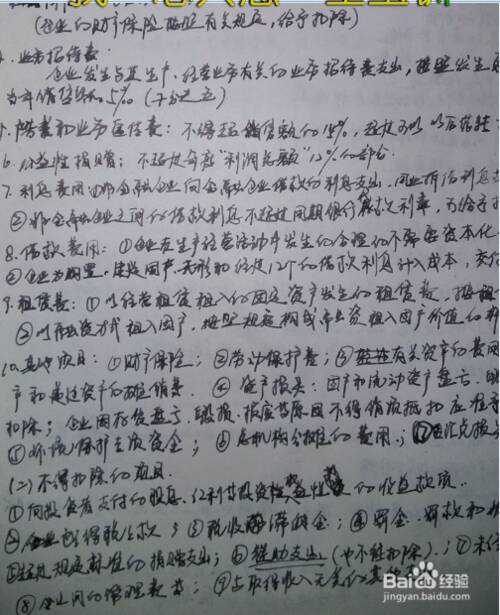 (企业的财产保险按照有关规定,给予扣除)
4.业务招待费:
企业发生与其生产、经营业务有关的业务招待费支出,按照发生
为年销售的5‰(千分之五)
5.广告费和业务宣传费:不得超销售额的15%,超过可以以后结转
6.公益性捐赠:不超过年度"利润总额"12%的部分
7.利息费用①非金融企业向金融企业借款的利息支出、同业拆借利息
②非金融企业之间的借款利息不超过同期银行贷款利率,可给予
8.借款费用:①企业在生产经营活动中发生的合理的不需要资本化
②企业为购置、建造固产、无形和经过12个的借款利息计入成本,
9.租赁费:①以经营租赁租入的固定资产发生的租赁费,按租
②以融资方式租入固产,按照规定构成融资租入固产价值的
10.其他项目:①财产保险;②劳动保护费;③有关资产的费用
产和递延资产的摊销费.④资产损失:固产和流动资产盘亏、
扣除;企业因存货盘亏、毁损、报废等原因不得销项抵扣应准
⑤环境保护专项资金;⑥总机构分摊的费用;⑦汇兑损
(二)不得扣除的项目
①向投资者支付的股息、红利等投资性权益性的收益款项.
②企业所得税税款;③税收滞纳金;④罚金、罚款和
⑤超过规定标准的捐赠支出;⑥赞助支出(也不能扣除).;⑦未
⑧企业间的管理费等;⑨与取得收入无关的其他
Baidu经验
jingyan.baidu.com